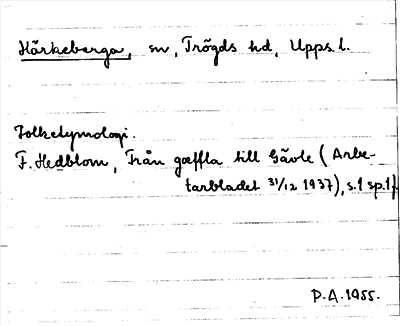 Härkeberga, sn, Trögds hd, Upps. l.
Folketymologi.
F. Hedblom, Från gaffla till Gävle (Arbe-
tarbladet 31/12 1937), s. 1 sp. 1 f.
P.A. 1955.